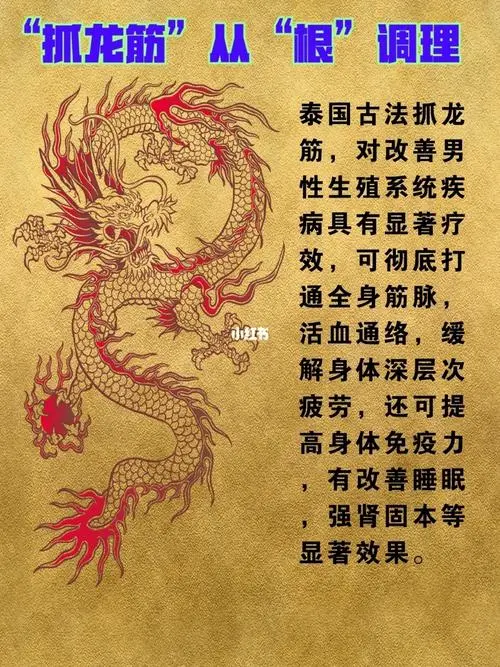 “抓龙筋”从“根”调理
泰国古法抓龙
筋，对改善男
性生殖系统疾
病具有显著疗
效，可彻底打
通全身筋脉，
活血通络，缓
解身体深层次
疲劳，还可提
高身体免疫力
，有改善睡眠
，强肾固本等
显著效果。
小红书